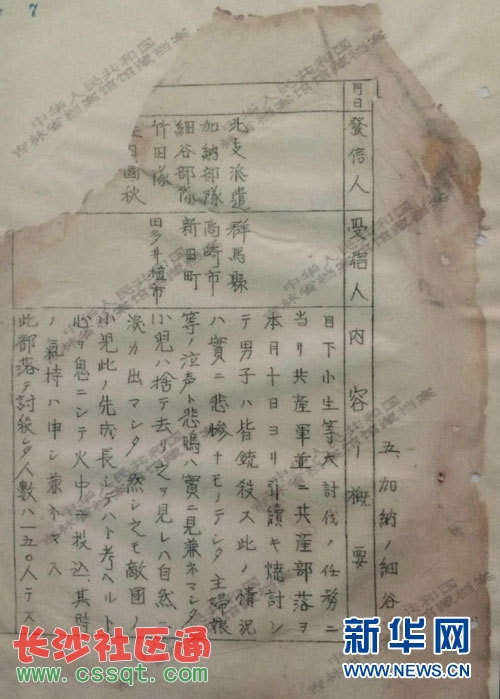 7
五、加納ノ細谷
月日
發信人
受信人
内容ノ概要
北支派遣
加納部隊
細谷部隊
竹田隊
田國秋
群馬縣
高崎市
新田町
田多井植市
目下小生等大討伐ノ任務ニ
当リ共産軍並ニ共産部落ヲ
本月十日ヨリ引續キ焼討シ
テ男子ハ皆銃殺ス此ノ情況
ハ實ニ悲惨ナモノデシタ主婦娘
等ノ泣声ト悲鳴ハ實ニ見兼ネマシタ
小児ハ捨テ去リ之ヲ見レハ自然ニ
涙カ出マシタ然シ之モ敵國ノ
小児此ノ先成長シテハト考ヘルト
心ヲ息ニシテ火中ニ投込其時
ノ氣持ハ申シ兼ネマス
此部落デ討殺シタ人数ハ一五〇人デス
中华人民共和国
吉林省档案馆馆藏档案
中华人民共和国
吉林省档案馆馆藏档案
中华人民共和国
吉林省档案馆馆藏档案
长沙社区通
www.cssqt.com
新华网
WWW.NEWS.CN